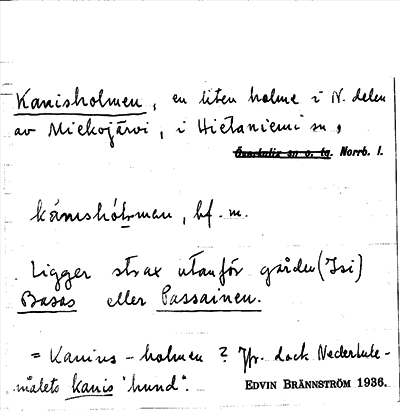 Kanisholmen, en liten holme i N. delen
av Miekojärvi, i Hietaniemi sn,
Överkalix sn o. tg. Norrb. l.
kánishól̠man, bf. m.
Ligger strax utanför gården (Isi)
Basas eller Passainen.
= Kanins-holmen? Jfr. dock Nederkale-
målets kanis "hund".
EDVIN BRÄNNSTRÖM 1936.